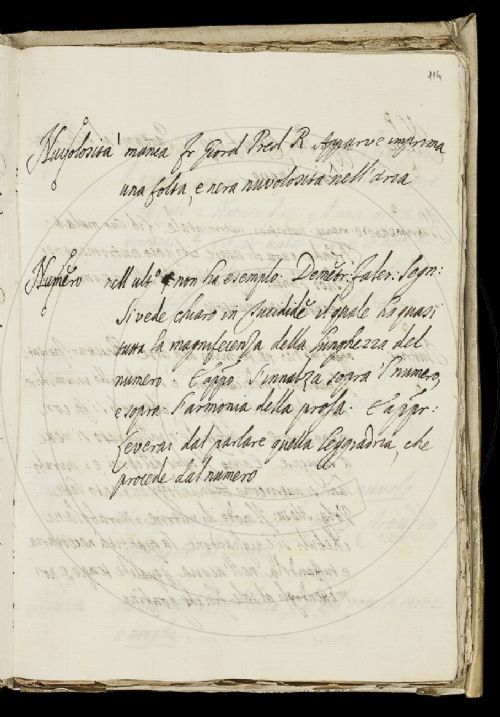 114
Nuvolosità manca Fr Giord Pred R. Apparve imprima
una folta, e nera nuvolosità nell'aria
Numero nell'ult.º non ha esempio. Demetr: faler. Segn:
Si vede chiaro in Tucidide il quale ha quasi
tutta la magnificenza della lunghezza del
numero. E appo. S'innalza sopra 'l numero,
e sopra l'armonia della prosa. E appr:
Leverai dal parlare quella leggiadria, che
procede dal numero